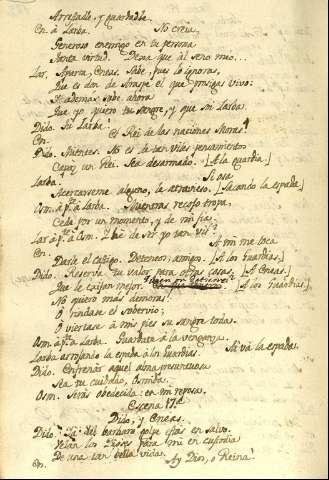 Arrestadle, y guardadle.
En. á Iarba. No creia,
Generoso enemigo en tu persona
Tanta virtud. Dexa que al seno mio...
Iar. Aparta, Eneas. Sabe, pues lo ignoras,
Que es don de Araspe el que prosigas vivo:
Que yo quiero tu sangre, y que soi Iarba.
Dido. Tu Iarba!
En. El Rei de las naciones Moras!
Dido. Mientes. No es de tan viles pensamientos
Capaz un Rei. Sea desarmado. [A la guardia.]
Iarba. Si osa
Acercarseme alguno, le atravieso. [Sacando la espada]
Osm. á pte. á Iarba. Mientras recojo tropa,
Cede por un momento, y de mi fia.
Iar. á pte. á Osm. I he de ser yo tan vil?
En. A mi me toca
Darle el castigo. Detenéos amigos. [A los Guardias.]
Dido. Reserva tu valor para otras cosas. [A Eneas.]
No quiero más demoras:
O rindase el sobervio;
O viertase á mis pies su sangre toda.
Osm. á pte. á Iarba. Guardate á la venganza.
Iarba arrojando la espada á los Guardias. Ai vá la espada.
Dido. Enfrenar aquel alma presuntuosa
Sea tu cuidado, Osmida.
Osm. Serás obedecida: en mi reposa.
Escena 17.ª
Dido, y Eneas.
Dido. Ya del barbaro golpe estás en salvo.
Velan los Dioses para mi en custodia
De una tan bella vida.
En. Ay Dios, o Reina!